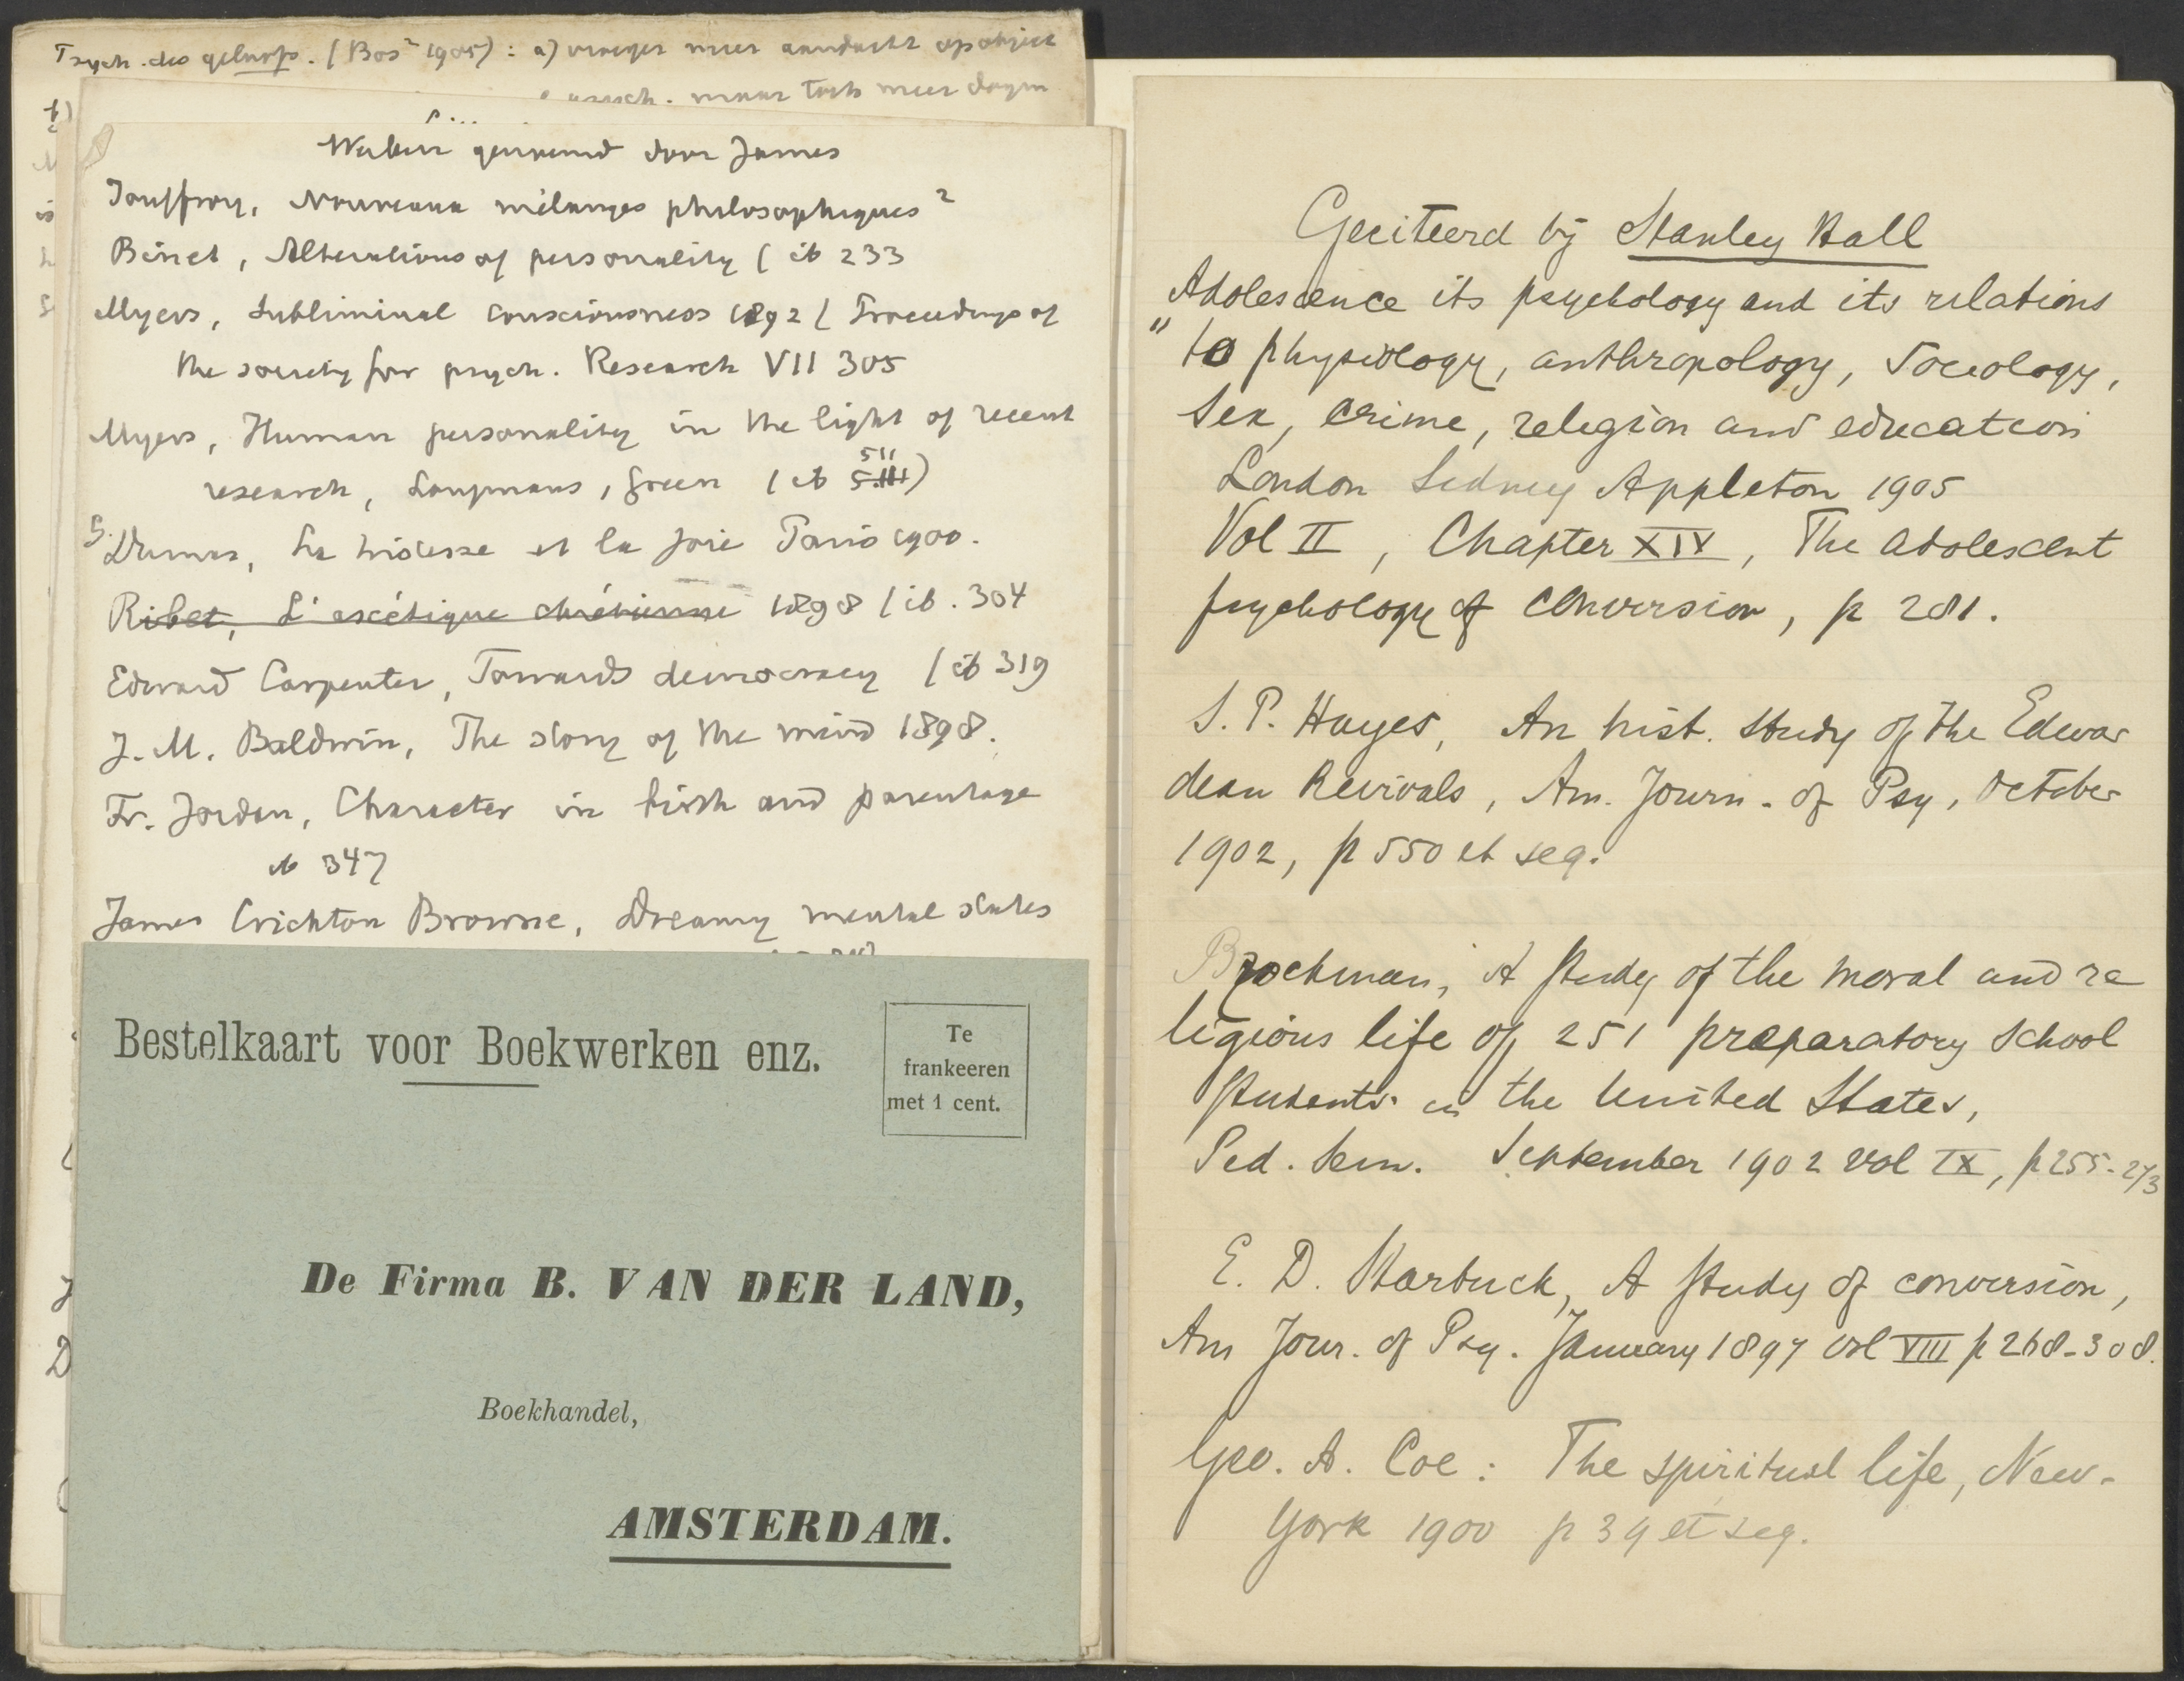 Psych. des geloofs. (Bos² 1905): a) vroeger meer aandacht op object
psych. maar toch meer
b)
Werken genoemd door James
Jouffroy, Nouveaux mélanges philosophiques²
Binet, Alterations of personality ( ib 233
Myers, Subliminal consciousness 1892 ( Proceedings of
the society for psych. Research VII 305
Myers, Human personality in the light of recent
research, Longmans, Green ( ib 511)
G. Dumas, La tristesse et la joie Paris 1900.
Ribet, L'ascétique chrétienne 1898 ( ib. 304
Edward Carpenter, Towards democracy ( ib 319
J. M. Baldwin, The story of the mind 1898.
Fr. Jordan, Character in birth and parentage
ib 347
James Crichton Browne, Dreamy mental states
Bestelkaart voor Boekwerken enz.
Te
frankeeren
met 1 cent.
De Firma B. VAN DER LAND,
Boekhandel,
AMSTERDAM.
Geciteerd bij Stanley Hall
Adolescence its psychology and its relations
" to physiology, anthropology, sociology,
sex, crime, religion and education
London Sidney Appleton 1905
Vol II, Chapter XIV, The adolescent
psychology of conversion, p 281.
S. P. Hayes, An hist. study of the Edwar
dean Revivals, Am. Journ. of Psy, October
1902, p 550 et seq.
Brockman, A study of the moral and re
ligious life of 251 preparatory school
students in the United States,
Ped. Sem. September 1902 vol IX, p 255-273
E. D. Starbuck, A study of conversion,
Am Jour. of Psy. January 1897 vol VIII p 268-308.
Geo. A. Coe: The spiritual life, New-
York 1900 p 39 et seq.